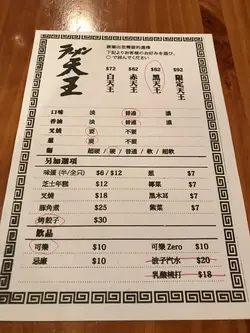 ラーメン天王
請圈出您想要的選擇
下記よりお客様のお好みを選び、
○で囲んでください
$72 $82 $82 $92
白天王 赤天王 黒天王 限定天王
口味 淡 普通 濃
背油 淡 普通 濃
叉燒 要 不要
蔥 要 不要
麵 超硬 / 硬 / 普通 / 軟 / 超軟
另加選項
味蛋 (半/全只) $6 / $12 蔥 $7
芝士年糕 $12 椰菜 $7
叉燒 $18 黑木耳 $7
豚角煮 $25 紫菜 $7
烤餃子 $30
飲品
可樂 $10 可樂 Zero $10
忌廉 $10 波子汽水 $20
乳酸桃打 $18